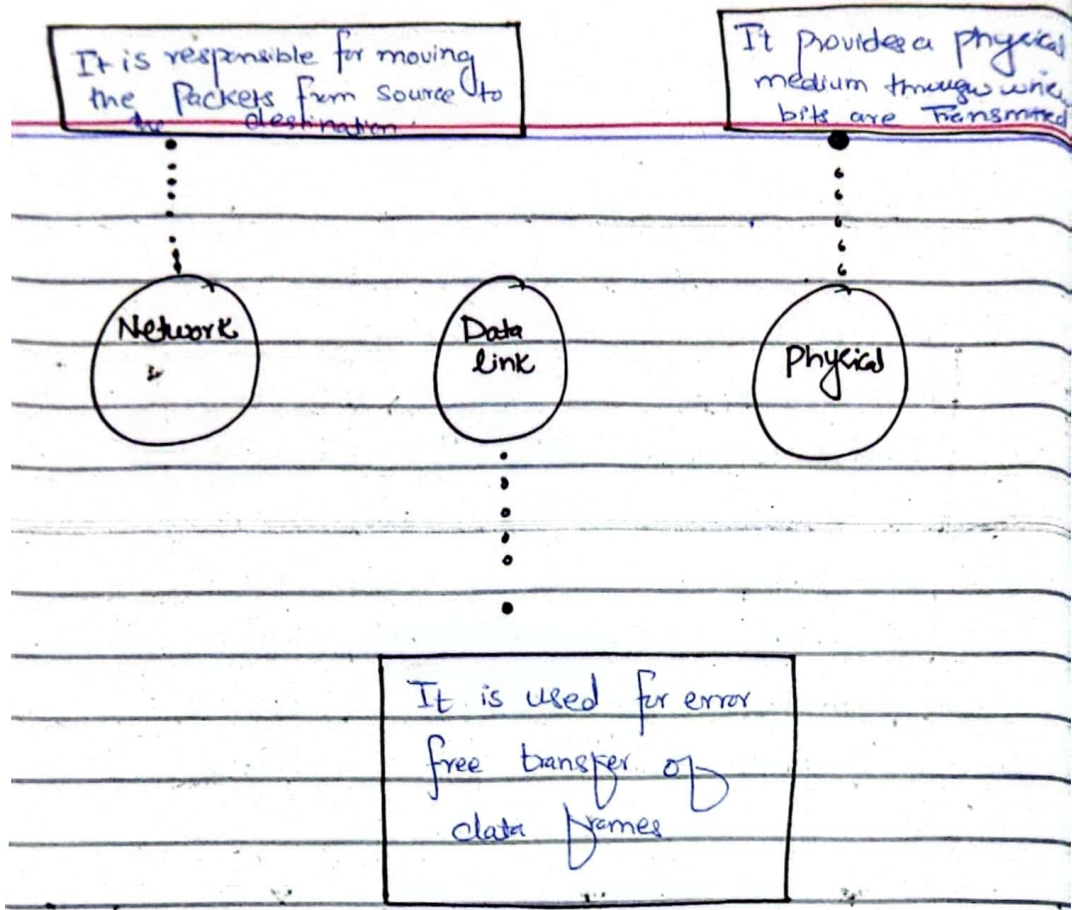 It is responsible for moving
the Packets from source to
the destination
It provides a physical
medium through
bits are Transmitted
Network
Data
link
Physical
It is used for error
free transfer of
data frames